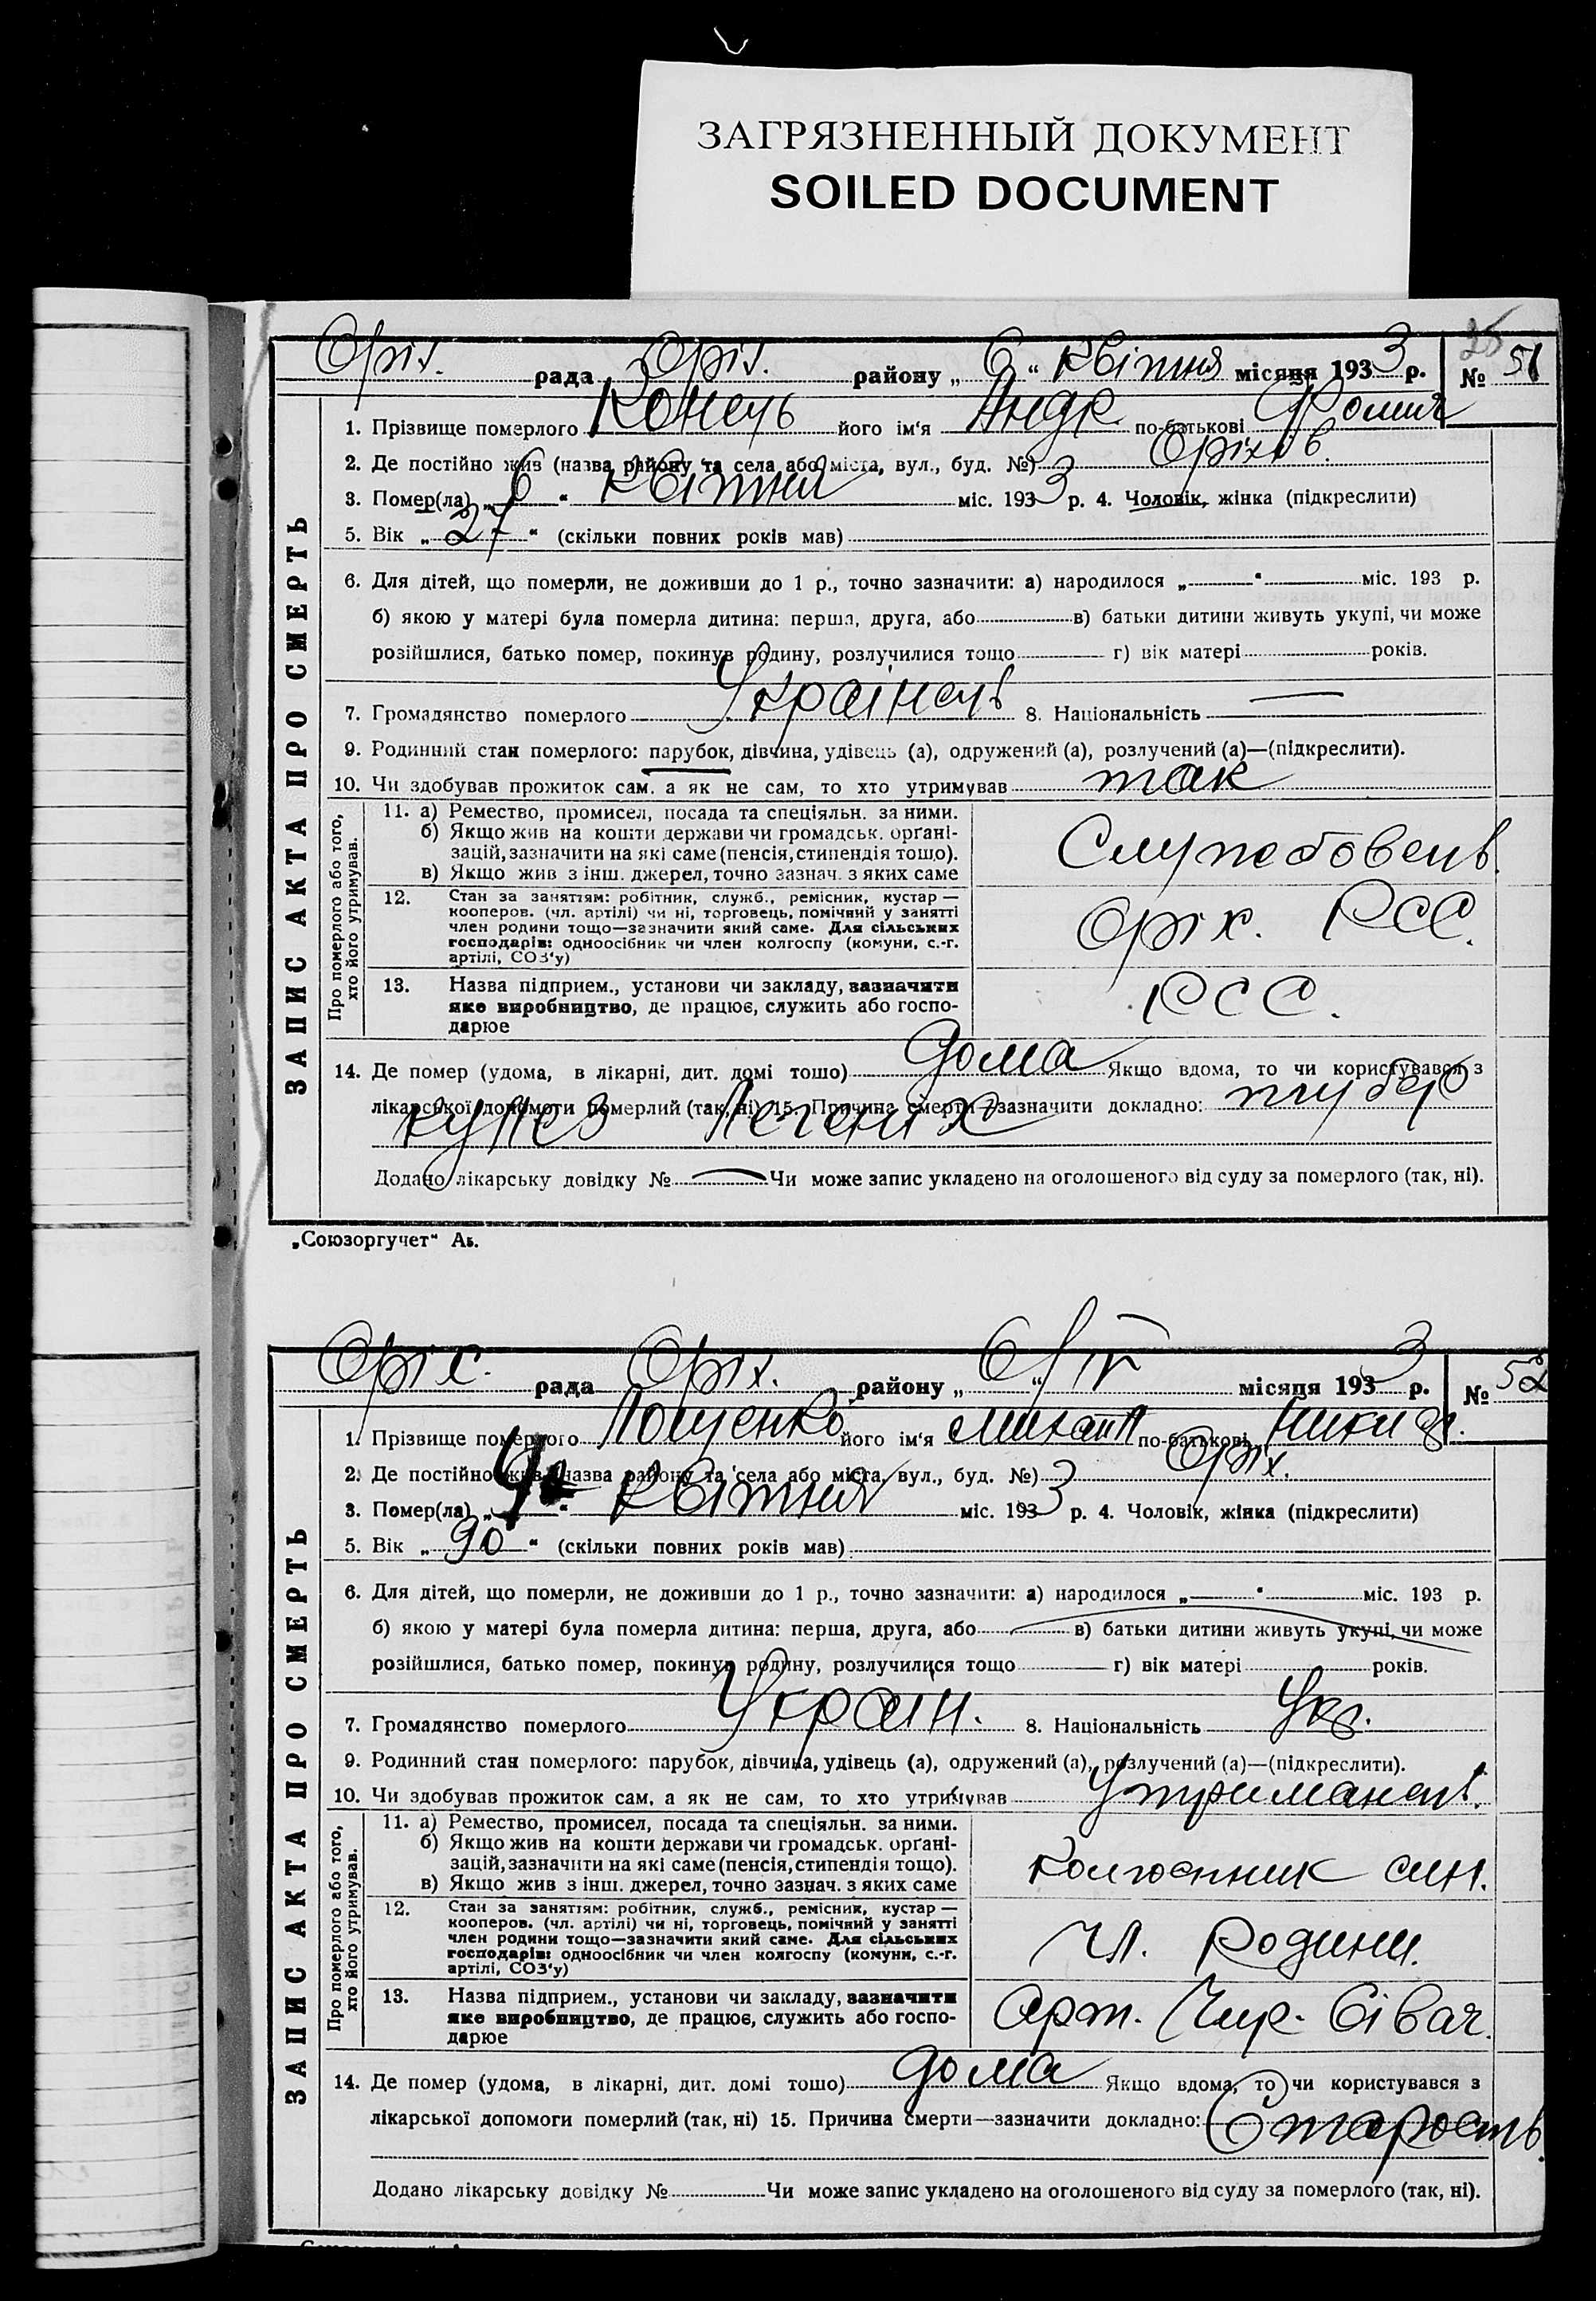 ЗАГРЯЗНЕННЫЙ ДОКУМЕНТ
SOILED DOCUMENT
25
Оріх. рада Оріх. району „ 6 “ Квітня місяця 1933 р. № 51
ЗАПИС АКТА ПРО СМЕРТЬ
1. Прізвище померлого Конець його ім'я Андр. по-батькові Фомич
2. Де постійно жив (назва району та села або міста, вул., буд. №) Оріхів.
3. Помер(ла) „ 6 “ Квітня міс. 1933 р. 4. Чоловік, жінка (підкреслити)
5. Вік „ 27 “ (скільки повних років мав)
6. Для дітей, що померли, не доживши до 1 р., точно зазначити: а) народилося „ “ міс. 193 р.
б) якою у матері була померла дитина: перша, друга, або в) батьки дитини живуть укупі, чи може
розійшлися, батько помер, покинув родину, розлучилися тощо г) вік матері років.
7. Громадянство померлого Українець 8. Національність —
9. Родинний стан померлого: парубок, дівчина, удівець (а), одружений (а), розлучений (а)—(підкреслити).
10. Чи здобував прожиток сам, а як не сам, то хто утримував так
Про померлого або того, хто його утримував.
11. а) Ремество, промисел, посада та спеціяльн. за ними.
б) Якщо жив на кошти держави чи громадськ. орґані-
зацій, зазначити на які саме (пенсія, стипендія тощо).
в) Якщо жив з інш. джерел, точно зазнач. з яких саме
Службовець
12. Стан за заняттям: робітник, служб., ремісник, кустар —
кооперов. (чл. артілі) чи ні, торговець, помічний у занятті
член родини тощо—зазначити який саме. Для сільських
господарів: одноосібник чи член колгоспу (комуни, с.-г.
артілі, СОЗ'у)
Оріх. РСС.
13. Назва підприєм., установи чи закладу, зазначити
яке виробництво, де працює, служить або госпо-
дарює
РСС.
14. Де помер (удома, в лікарні, дит. домі тощо) дома Якщо вдома, то чи користувався з
лікарської допомоги померлий (так, ні) 15. Причина смерти—зазначити докладно: тубер
кульоз Легених
Додано лікарську довідку № — Чи може запис укладено на оголошеного від суду за померлого (так, ні).
„Союзоргучет“ Аь.
Оріх. рада Оріх. району „ 6 “ IV місяця 1933 р. № 52
ЗАПИС АКТА ПРО СМЕРТЬ
1. Прізвище померлого його ім'я Михайл по-батькові Никиф.
2. Де постійно жив (назва району та села або міста, вул., буд. №) Оріх.
3. Помер(ла) „ “ Квітня міс. 1933 р. 4. Чоловік, жінка (підкреслити)
5. Вік „ 90 “ (скільки повних років мав)
6. Для дітей, що померли, не доживши до 1 р., точно зазначити: а) народилося „ “ міс. 193 р.
б) якою у матері була померла дитина: перша, друга, або в) батьки дитини живуть укупі, чи може
розійшлися, батько помер, покинув родину, розлучилися тощо г) вік матері років.
7. Громадянство померлого Україн. 8. Національність Укр.
9. Родинний стан померлого: парубок, дівчина, удівець (а), одружений (а), розлучений (а)—(підкреслити).
10. Чи здобував прожиток сам, а як не сам, то хто утримував Утриманець.
Про померлого або того, хто його утримував.
11. а) Ремество, промисел, посада та спеціяльн. за ними.
б) Якщо жив на кошти держави чи громадськ. орґані-
зацій, зазначити на які саме (пенсія, стипендія тощо).
в) Якщо жив з інш. джерел, точно зазнач. з яких саме
Колгоспник син.
12. Стан за заняттям: робітник, служб., ремісник, кустар —
кооперов. (чл. артілі) чи ні, торговець, помічний у занятті
член родини тощо—зазначити який саме. Для сільських
господарів: одноосібник чи член колгоспу (комуни, с.-г.
артілі, СОЗ'у)
Чл. Родини.
13. Назва підприєм., установи чи закладу, зазначити
яке виробництво, де працює, служить або госпо-
дарює
Арт. Чер. Сівач.
14. Де помер (удома, в лікарні, дит. домі тощо) дома Якщо вдома, то чи користувався з
лікарської допомоги померлий (так, ні) 15. Причина смерти—зазначити докладно: Старость.
Додано лікарську довідку № Чи може запис укладено на оголошеного від суду за померлого (так, ні).